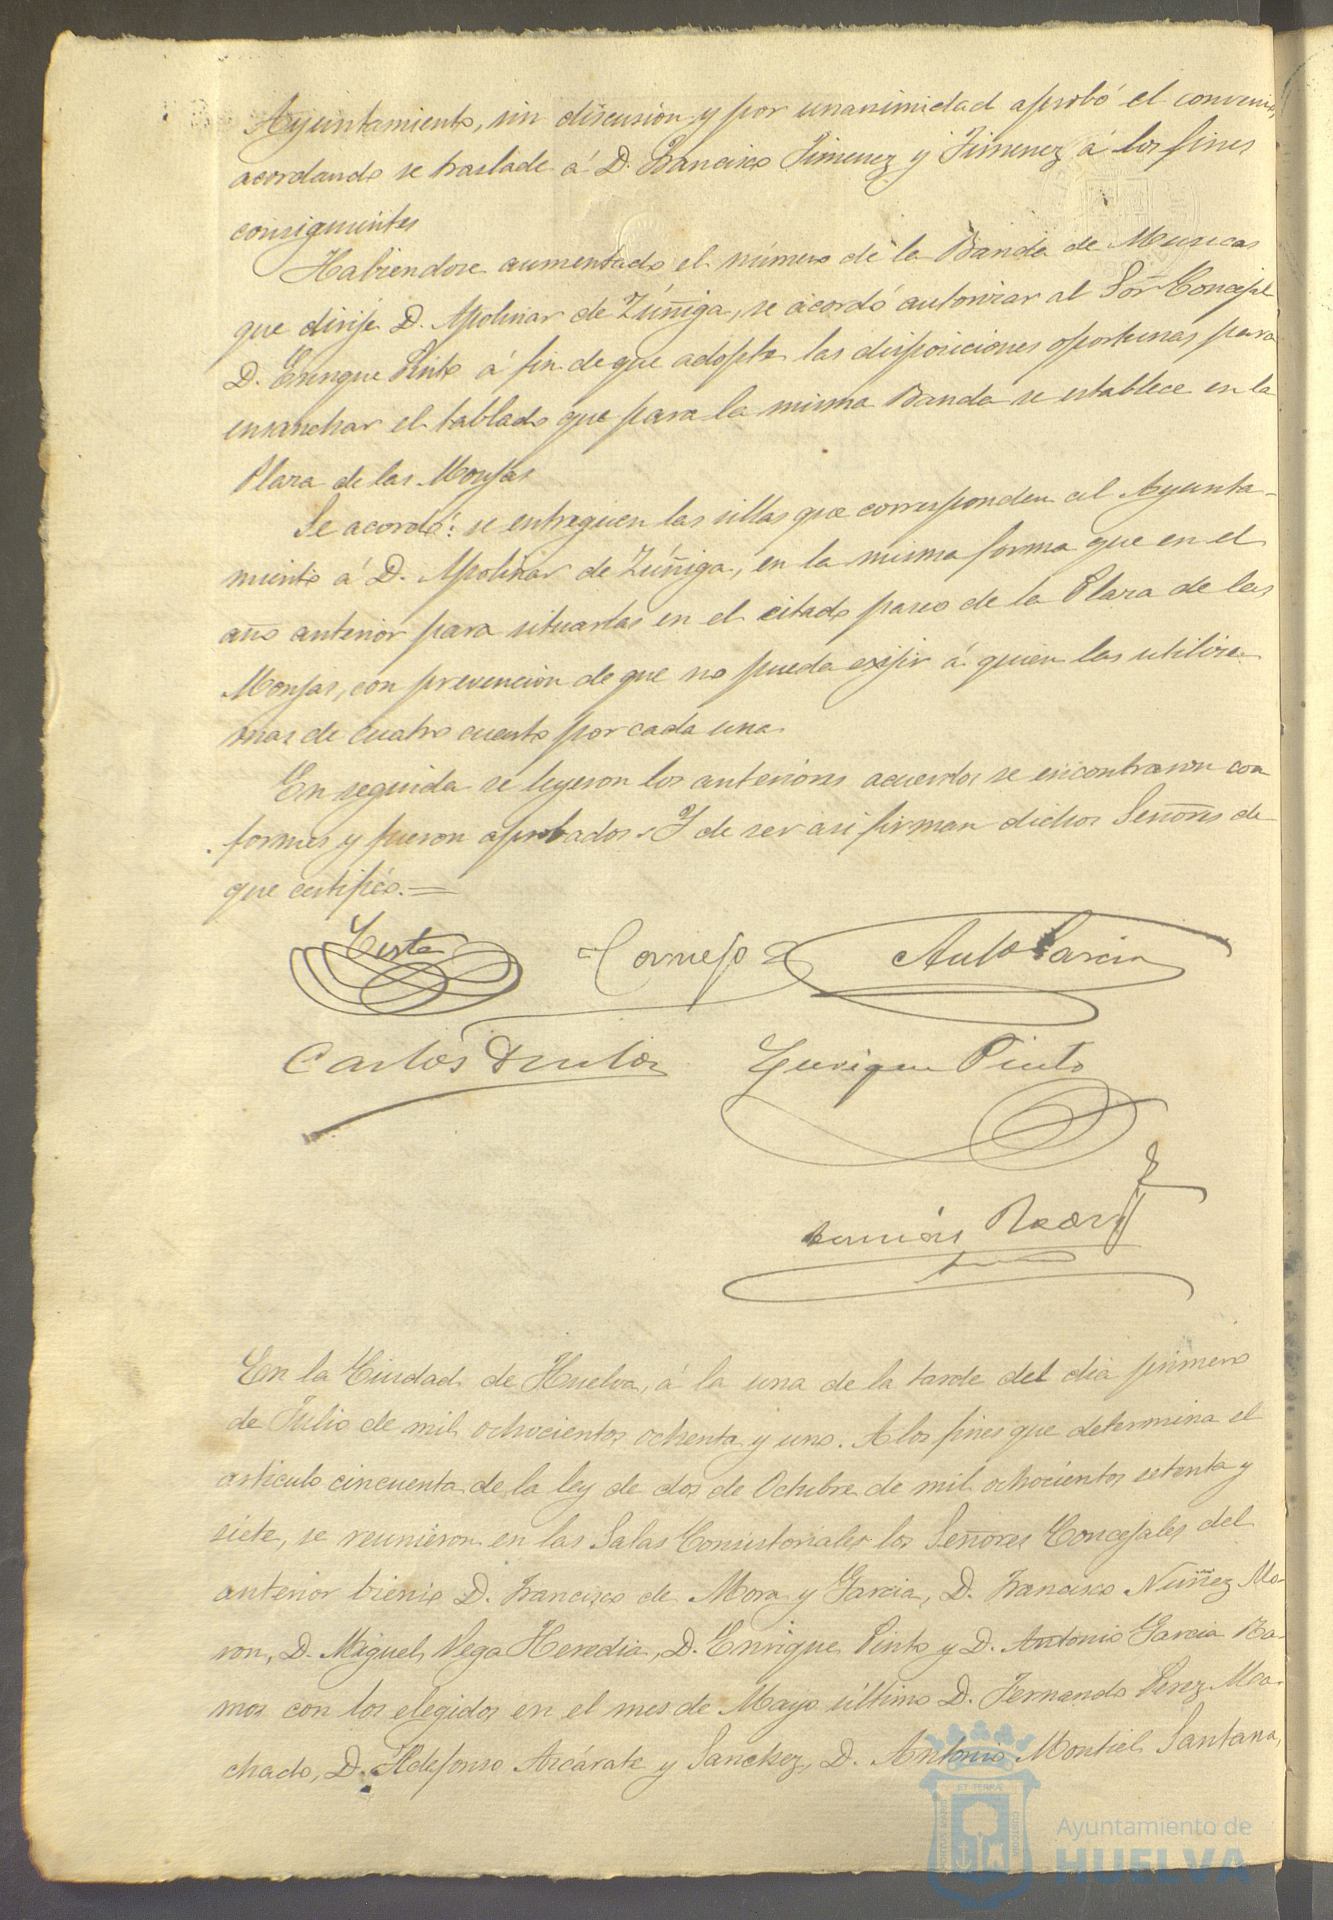 Ayuntamiento, sin discusion y por unanimidad aprobó el convenio,
acordando se traslade á D. Francisco Jimenez y Jimenez á los fines
consiguientes
Habiendose aumentado el número de la Banda de Musicas
que dirije D. Apolinar de Zúñiga, se acordó autorizar al Sor. Concejal
D. Enrique Pinto á fin de que adopte las disposiciones oportunas para
ensanchar el tablado que para la misma Banda se establece en la
Plaza de las Monjas
Se acordó: se entreguen las sillas que corresponden al Ayunta-
miento á D. Apolinar de Zúñiga, en la misma forma que en el
año anterior para situarlas en el citado paseo de la Plaza de las
Monjas, con prevencion de que no pueda exijir á quien las utilize
mas de cuatro cuartos por cada una
En seguida se leyeron los anteriores acuerdos se encontraron con
formes y fueron aprobados. Y de ser asi firman dichos Señores de
que certifico.=
Cornejo Anto Garcia
Carlos Enrique Pinto
En la Ciudad de Huelva, á la una de la tarde del dia primero
de Julio de mil ochocientos ochenta y uno. A los fines que determina el
articulo cincuenta de la ley de dos de Octubre de mil ochocientos setenta y
siete, se reunieron en las Salas Consistoriales los Señores Concejales del
anterior bienio D. Francisco de Mora y Garcia, D. Francisco Nuñez Mo-
ron, D. Miguel Vega Heredia, D. Enrique Pinto y D. Antonio Garcia Ra-
mos con los elegidos en el mes de Mayo último D. Fernando Perez Ma-
chado, D. Ildefonso Azcárate y Sanchez, D. Antonio Montiel Santana,
Ayuntamiento de
HUELVA